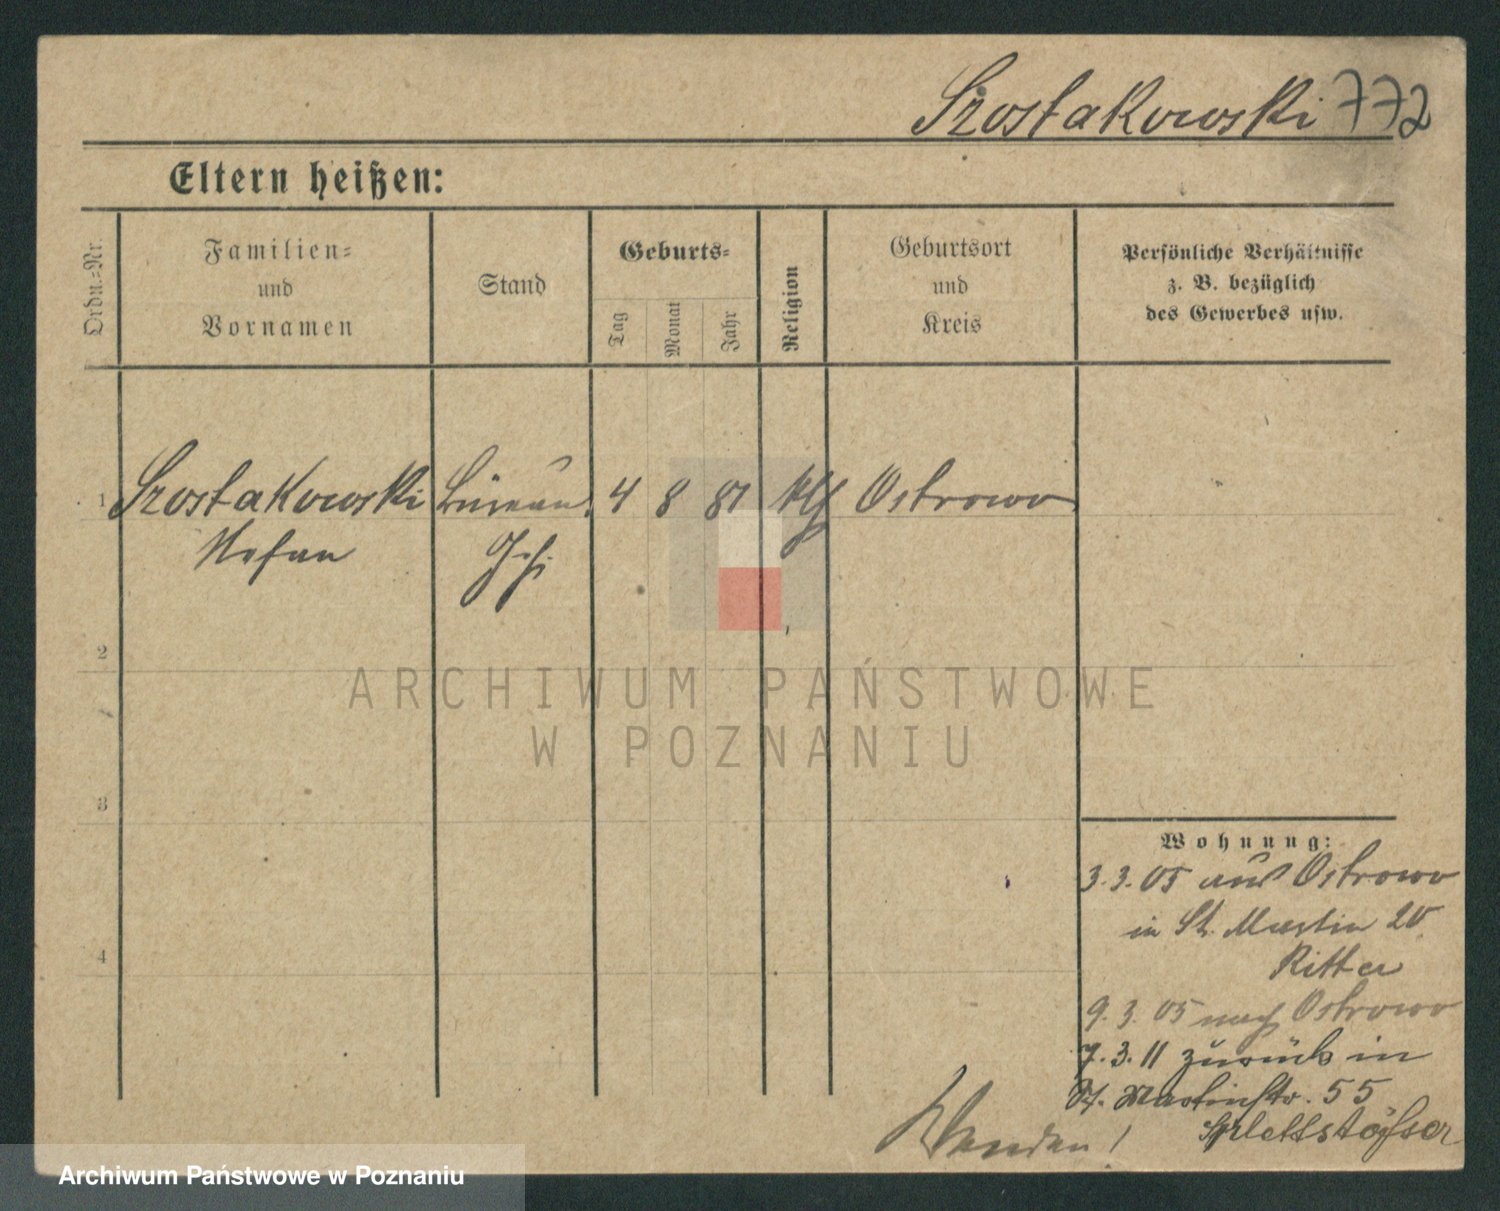 Szostakowski 772
Eltern heißen:
Ordn.-Nr.
Familien-
und
Vornamen
Stand
Geburts-
Tag
Monat
Jahr
Religion
Geburtsort
und
Kreis
Persönliche Verhältnisse
z. B. bezüglich
des Gewerbes usw.
1 Szostakowski Büreau 4 8 81 kth Ostrowo
Stefan
2
3
4
ARCHIWUM PAŃSTWOWE
W POZNANIU
Wohnung:
3.3.05 aus Ostrowo
in St. Martin 20
Ritter
9.3.05 nach Ostrowo
7.3.11 zurück in
St. Martinstr. 55
Splettstößer
Wenden!
Archiwum Państwowe w Poznaniu